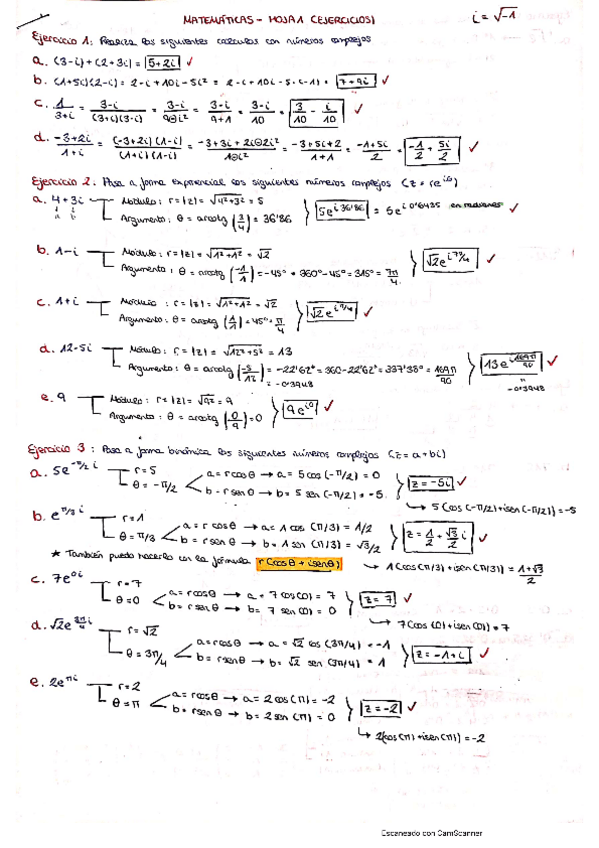 MATEMÁTICAS - HOJA 1 (EJERCICIOS) i = √-1
Ejercicio 1: Realiza los siguientes cálculos con números complejos
a. (3-i) + (2+3i) = 5+2i ✓
b. (1+5i)(2-i) = 2-i+10i-5i² = 2-i+10i-5·(-1) = 7+9i ✓
c. 1/(3+i) = (3-i)/((3+i)(3-i)) = (3-i)/(9⊖i²) = (3-i)/(9+1) = (3-i)/10 = 3/10 - i/10 ✓
d. (-3+2i)/(1+i) = ((-3+2i)(1-i))/((1+i)(1-i)) = (-3+3i+2i⊖2i²)/(1⊖i²) = (-3+5i+2)/(1+1) = (-1+5i)/2 = -1/2 + 5i/2 ✓
Ejercicio 2: Pasa a forma exponencial los siguientes números complejos (z = re^iθ)
a. 4+3i Módulo: r = |z| = √4²+3² = 5
Argumento: θ = arcotg (3/4) = 36'86
5e^i 36'86 = 5e^i 0'6435 en radianes ✓
b. 1-i Módulo: r = |z| = √1²+1² = √2
Argumento: θ = arcotg (-1/1) = -45° = 360°-45° = 315° = 7π/4
√2 e^i 7π/4 ✓
c. 1+i Módulo: r = |z| = √1²+1² = √2
Argumento: θ = arcotg (1/1) = 45° = π/4
√2 e^i π/4 ✓
d. 12-5i Módulo: r = |z| = √12²+5² = 13
Argumento: θ = arcotg (-5/12) = -22'62° = 360-22'62° = 337'38° = 169π/90
= -0'3948
13e^i 169π/90 ✓
-0'3948
e. 9 Módulo: r = |z| = √9² = 9
Argumento: θ = arcotg (0/9) = 0
9e^i0 ✓
Ejercicio 3: Pasa a forma binómica los siguientes números complejos (z = a+bi)
a. 5e^-π/2 i r = 5 a = r cos θ → a = 5 cos (-π/2) = 0
θ = -π/2 b = r sen θ → b = 5 sen (-π/2) = -5
z = -5i ✓
↳ 5 (cos (-π/2) + i sen (-π/2)) = -5
b. e^π/3 i r = 1 a = r cos θ → a = 1 cos (π/3) = 1/2
θ = π/3 b = r sen θ → b = 1 sen (π/3) = √3/2
z = 1/2 + √3/2 i ✓
★ También puedo hacerlo con la fórmula r (cos θ + i sen θ)
↳ 1 (cos (π/3) + i sen (π/3)) = (1+√3)/2
c. 7e^0i r = 7 a = r cos θ → a = 7 cos (0) = 7
θ = 0 b = r sen θ → b = 7 sen (0) = 0
z = 7 ✓
↳ 7 (cos (0) + i sen (0)) = 7
d. √2 e^3π/4 i r = √2 a = r cos θ → a = √2 cos (3π/4) = -1
θ = 3π/4 b = r sen θ → b = √2 sen (3π/4) = 1
z = -1+i ✓
e. 2e^πi r = 2 a = r cos θ → a = 2 cos (π) = -2
θ = π b = r sen θ → b = 2 sen (π) = 0
z = -2 ✓
↳ 2 (cos (π) + i sen (π)) = -2
Escaneado con CamScanner